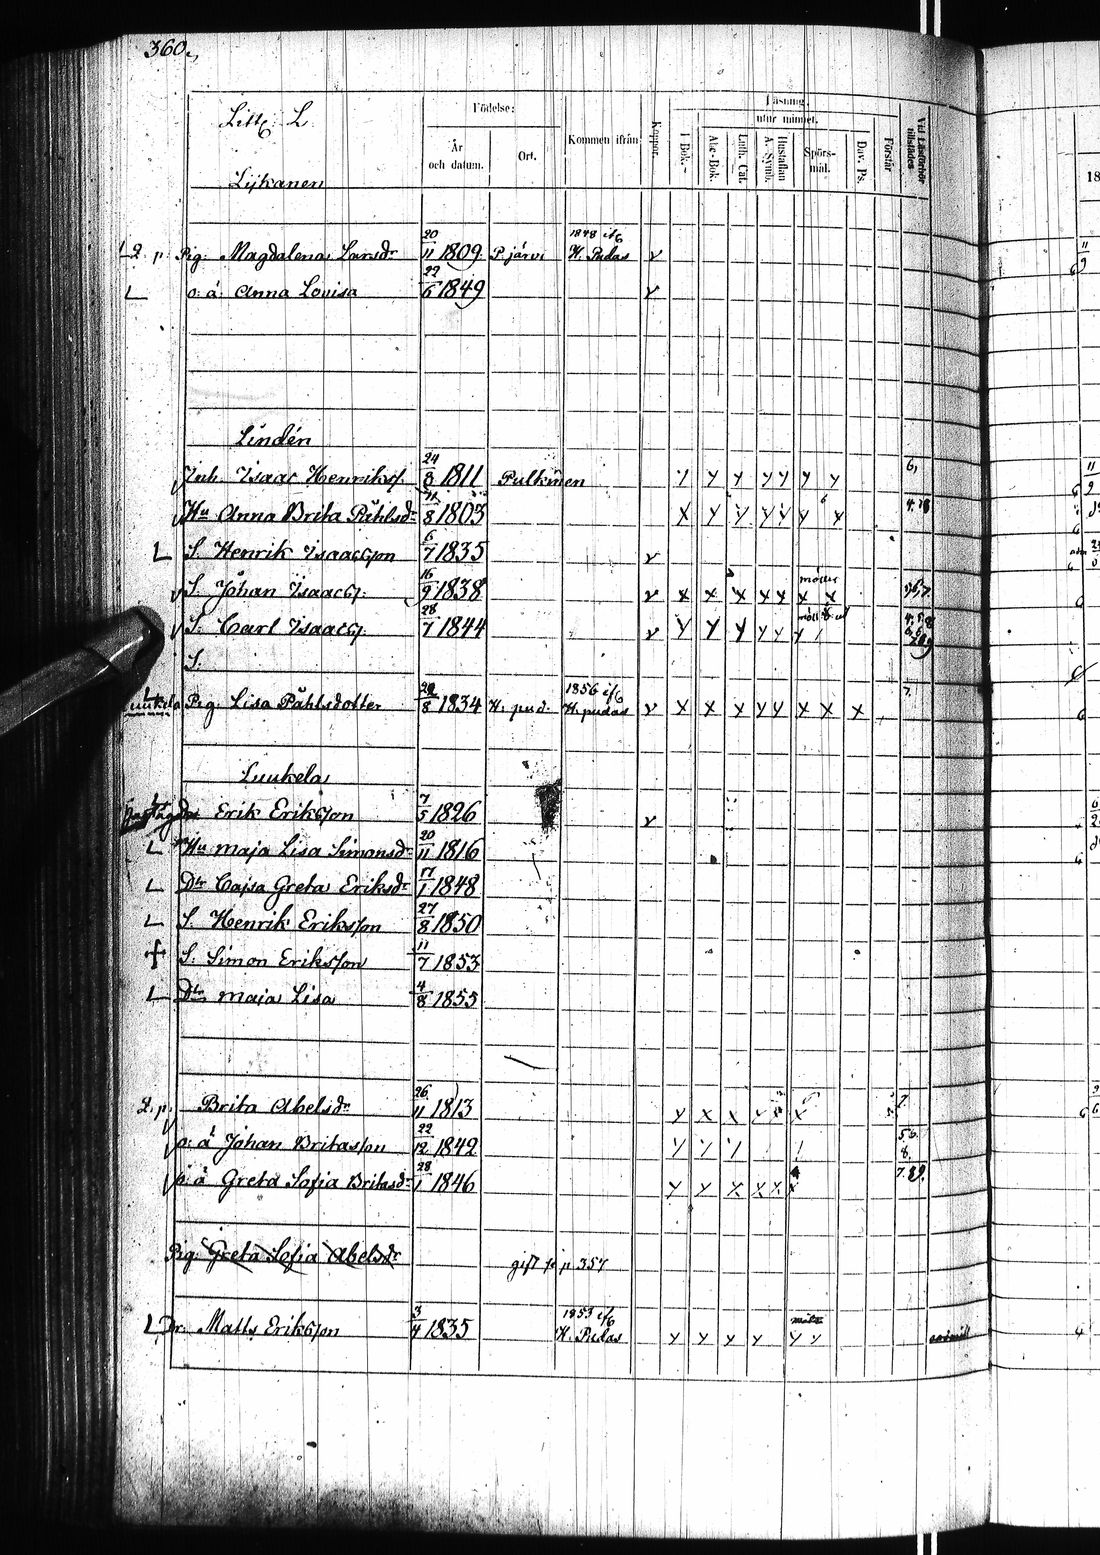 360.
Litt. L.
Födelse:
År och datum.
Ort.
Kommen ifrån
Koppor.
Läsning,
utur minnet.
I Bok.
Abc-Bok.
Luth. Cat.
Hustaflan A. Symb.
Spörs-mål.
Dav. Ps.
Förstår
Vid Läsförhör tillstädes
18
Lijkanen
L 2 p. Pig. Magdalena Larsdr 20/11 1809 P.järvi 1848 if H. Pudas v
L o: ä Anna Lovisa 22/6 1849 v
Lindén
Inh. Isaac Henrikss. 24/3 1811 Pulkinen
Hu Anna Brita Påhlsdr 11/8 1803 4.78
L S. Henrik Isaacsson 6/7 1835 v
v S. Johan Isaacss. 16/9 1838 v x x x x x x x
v S. Carl Isaacss. 28/7 1844 v
S.
L Luukela Pig. Lisa Påhlsdotter 28/8 1834 H. pud. 1856 if H. pudas v x x x x x x x x 7.
Luukela
Erik Eriksson 7/5 1826 v
L Hu Maja Lisa Simonsdr 20/11 1816
L Dtr Cajsa Greta Eriksdr 17/1 1848
L S. Henrik Eriksson 27/8 1850
+ S. Simon Eriksson 11/7 1853
L Dtr Maja Lisa 4/8 1855
2. p. Brita Abelsdr 26/11 1813 7.
o: ä Johan Britasson 22/12 1842 5.6. 8.
o: ä Greta Sofia Britasdr 28/1 1846 7.89.
Pig. Greta Sofia Abelsdr gift p. 357
L Dr. Matts Eriksson 3/4 1835 1853 if H. Pudas